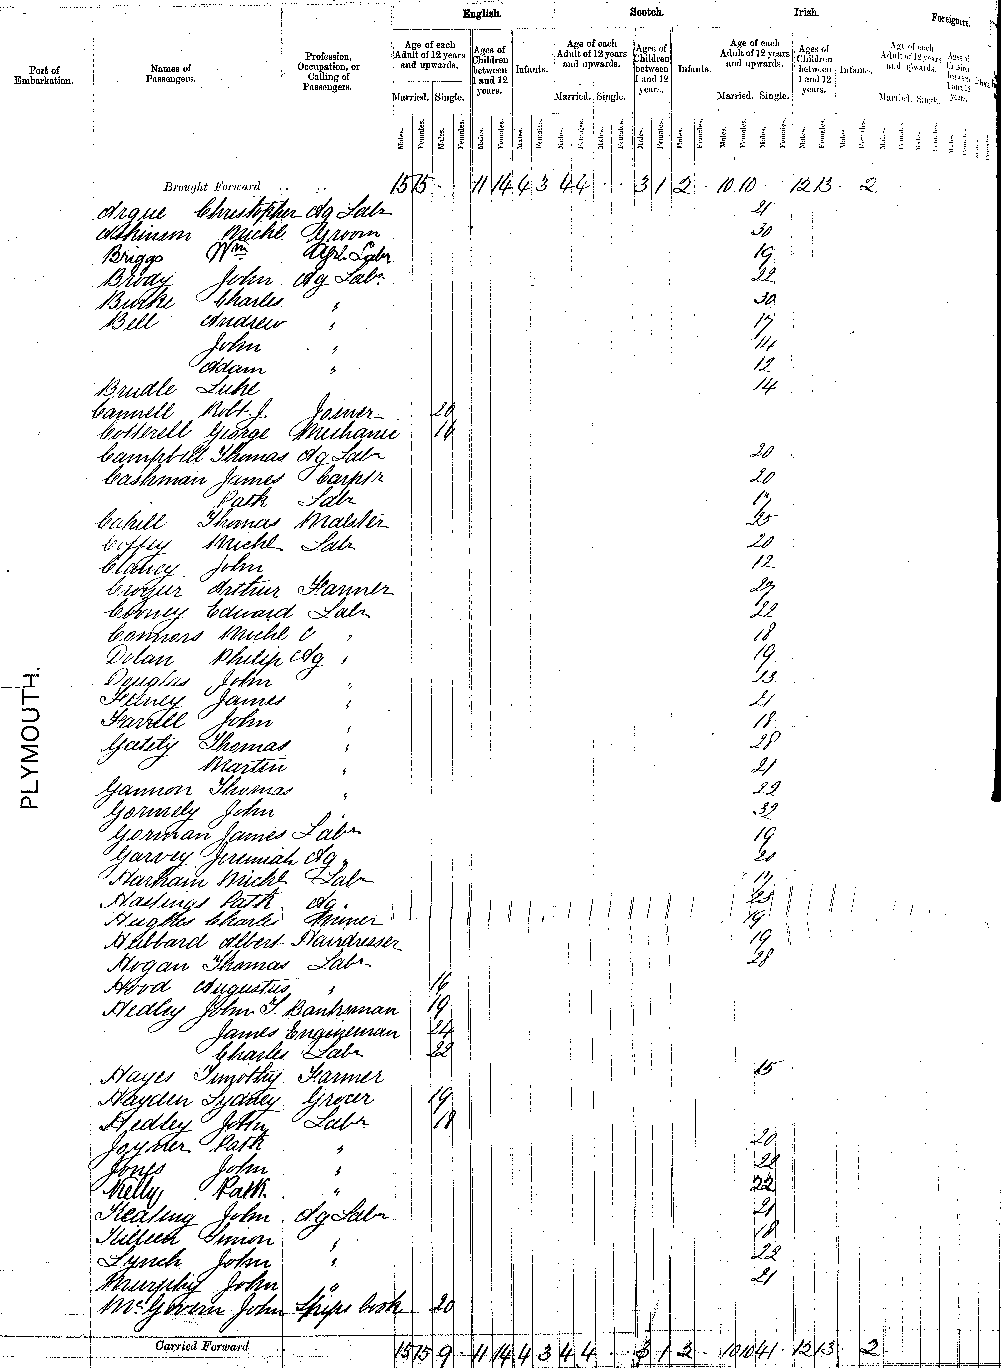 English. Scotch. Irish. Foreigners.
Port of Embarkation. Names of Passengers. Profession, Occupation, or Calling of Passengers.
Age of each Adult of 12 years and upwards. Ages of Children between 1 and 12 years. Infants. Age of each Adult of 12 years and upwards. Ages of Children between 1 and 12 years. Infants. Age of each Adult of 12 years and upwards. Ages of Children between 1 and 12 years. Infants. Age of each Adult of 12 years and upwards.
Married. Single. Married. Single. Married. Single. Married. Single.
Males. Females. Males. Females. Males. Females. Males. Females. Males. Females. Males. Females. Males. Females. Males. Females. Males. Females. Males. Females. Males. Females. Males. Females. Males. Females. Males. Females.
Brought Forward .. .. 15 15 11 14 4 3 4 4 3 1 2 10 10 12 13 2
Argue Christopher Ag Labr 21
Atkinson Michl Groom 30
Briggs Wm Agl. Labr 19
Brody John Ag Labr 22
Burke Charles " 30
Bell Andrew " 17
John " 14
Adam " 12
Brudle Luke 14
Cannell Robt J. Joiner 20
Cotterell George Mechanic 16
Campbell Thomas Ag Labr 20
Cashman James Carptr 20
Patk Labr 17
Cahill Thomas Malster 25
Coffey Michl Labr 20
Clancy John 12
Crozier Arthur Farmer 27
Cooney Edward Labr 22
Connors Michl C " 18
Dolan Philip Ag " 19
Douglas John "
Feeney James " 21
Farrell John " 18
Gately Thomas " 28
Martin " 21
Gannon Thomas " 22
Gormely John 32
Gorman James Labr 19
Garvey Jeremiah Ag " 20
Harham Michl Labr 17
Hastings Patk Ag "
Hughes Charles Miner 19
Hibbard Albert Hairdresser 19
Hogan Thomas Labr 28
Hood Augustus " 16
Hedley John T. Banksman 19
James Engineman 24
Charles Labr 22
Hayes Timothy Farmer 15
Hayden Sydney Grocer 19
Hedley John Labr 18
Joyner Patk " 20
Jones John " 22
Kelly Patk " 22
Keating John Ag Labr 21
Killeen Simon " 18
Lynch John " 22
Murphy John " 21
McGovern John Ships Cook 20
Carried Forward 15 15 9 11 14 4 3 4 4 3 1 2 10 10 41 12 13 2
PLYMOUTH.